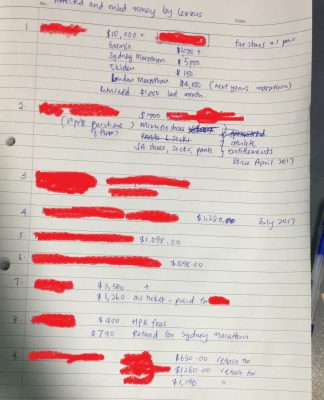 No. affected and owed money by Date
1. $10,000 +
Garmin $1000 + five shoes x 1 pair
Sydney Marathon $5000
Ekiden $100
London Marathon $4,500 (next year's marathon)
last month.
2. $7000
purchase) Mizuno shoes
Pants & socks athlete
SA shoes, socks, pants entitlements
since April 2017
3.
4. $1,250.00 July 2017
5. $1,095.00
6. $1095.00
7. $3,500 +
$1,260 air ticket - paid to
8. $400 HPB fees
$740 Refund for Sydney marathon
9. $650.00 return tix
$1260.00 return tix
$1,190 "